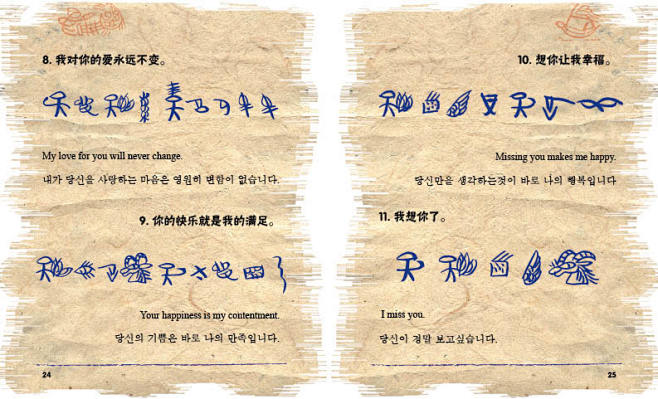 8. 我对你的爱永远不变。
My love for you will never change.
내가 당신을 사랑하는 마음은 영원히 변함이 없습니다.
9. 你的快乐就是我的满足。
Your happiness is my contentment.
당신의 기쁨은 바로 나의 만족입니다.
24
10. 想你让我幸福。
Missing you makes me happy.
당신만을 생각하는것이 바로 나의 행복입니다
11. 我想你了。
I miss you.
당신이 정말 보고싶습니다.
25